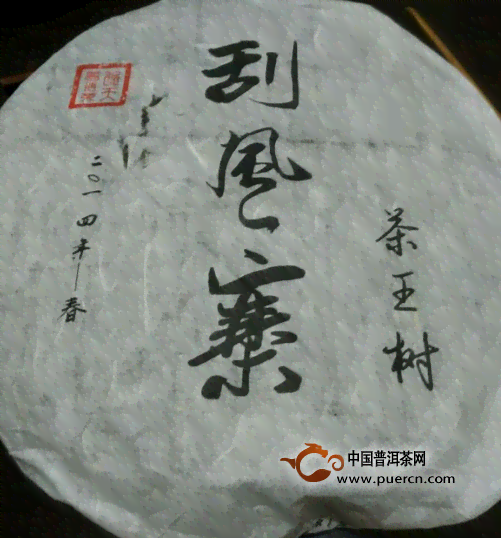 刮風寨
茶王树
二〇一四年春
中国普洱茶网
www.puercn.com